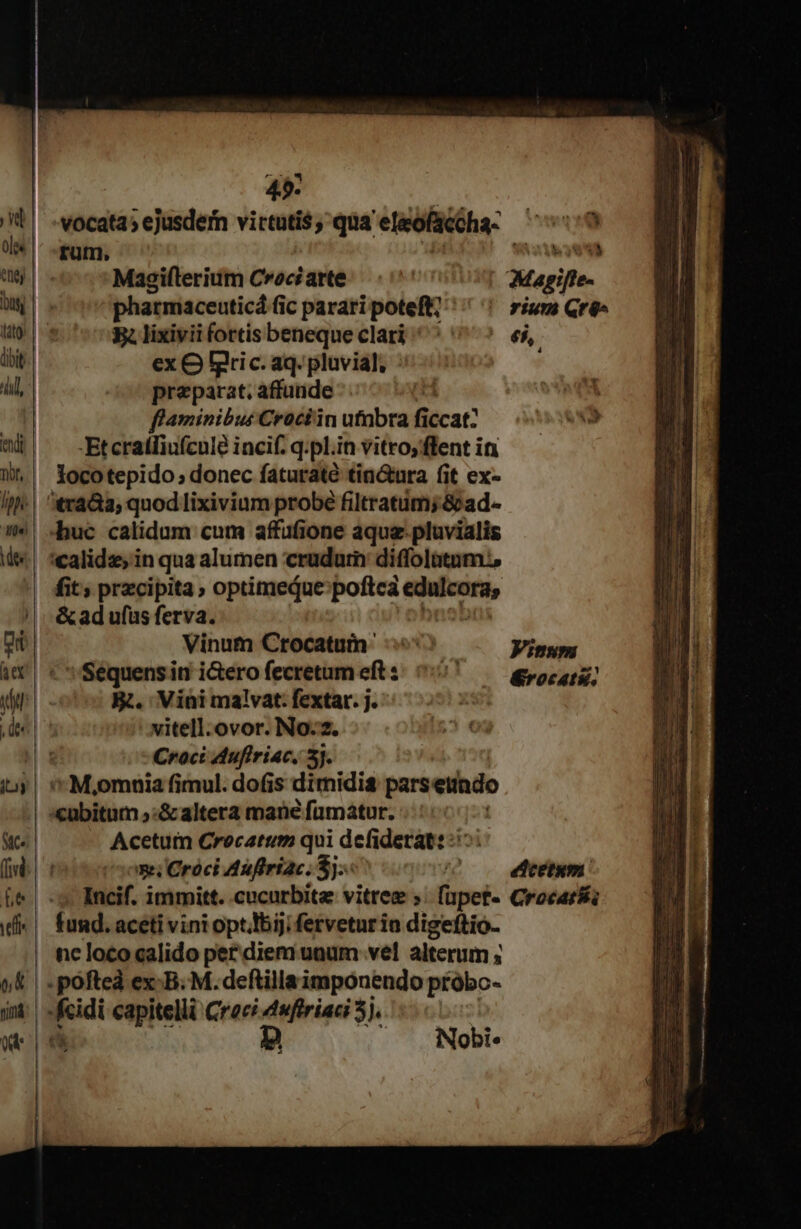 49.
vocata, ejusdem virtutis, qua elæosaccha-
rum.
Magiſterium Croci arte
Magiſte-
pharmaceuticâ ſic parari poteſt;
rium Cro-
℞. lixivii fortis beneque clari
ci,
ex ric. aq. pluvial.
præparat. affunde
ſtaminibus Croci in umbra ſiccat:
Et craſſiuſculè inciſ. q. pl. in vitro, ſtent in
loco tepido, donec ſaturatè tinctura ſit ex-
tracta, quod lixivium probè filtratum, & ad-
huc calidum cum affuſione aquæ pluvialis
calidæ, in qua alumen crudum diſſolutum
ſit, præcipita, optimeque poſteà edulcora,
& ad uſus ſerva.
Vinum Crocatum
Vinum
Sequens in ictero ſecretum eſt:
Crocatū.
℞. Vini malvat. ſextar. j.
vitell. ovor. No. 2.
Croci Auſtriac. ʒj.
M. omnia ſimul. doſis dimidia pars eundo
cubitum, & altera manè ſumatur.
Acetum Crocatum qui deſiderat:
℞. Croci Auſtriac. ℥j.
Acetum
Inciſ. immitt. cucurbitæ vitreæ, ſuper-
Crocatū;
fund. aceti vini opt. ℔ij. fervetur in digeſtio-
ne loco calido per diem unum vel alterum;
poſteà ex B. M. deſtilla imponendo proboſ-
ſcidi capitelli Croci Auſtriaci ʒj.
D
Nobi-